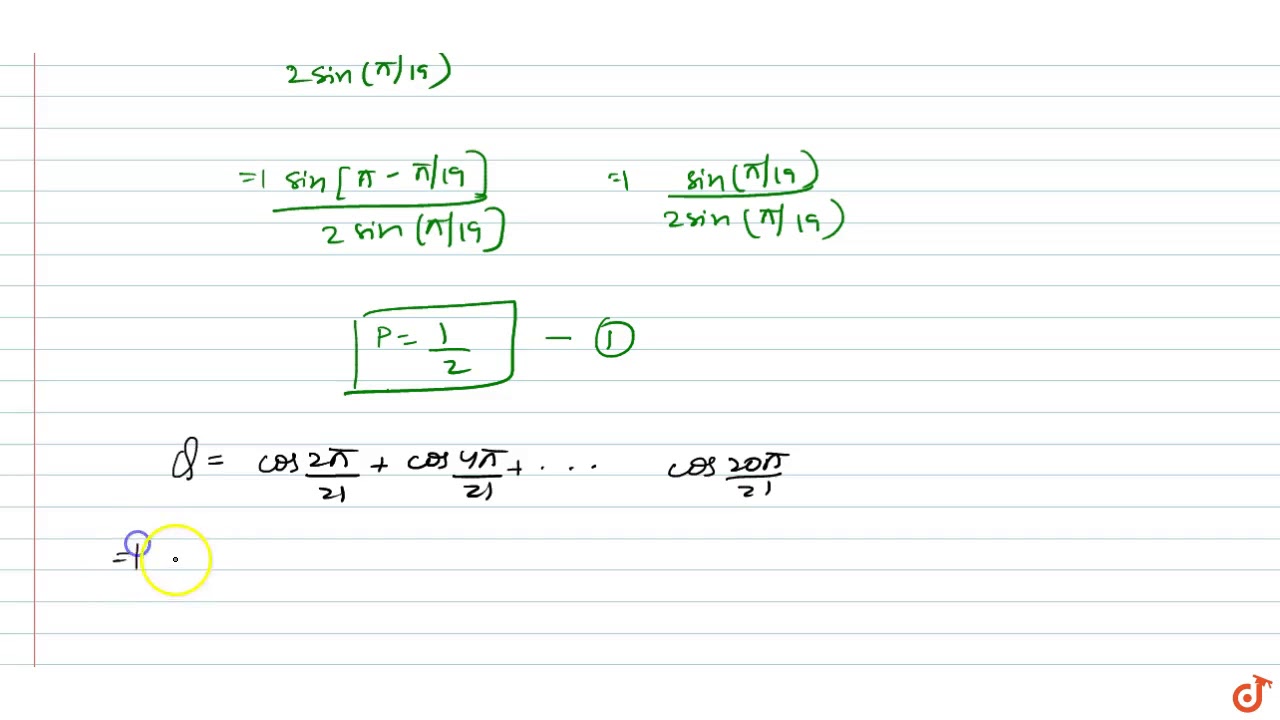 2 sin (π/19)
=1 sin[π - π/19] =1 sin(π/19)
2 sin (π/19] 2 sin (π/19)
P = 1/2 - ①
Q = cos 2π/21 + cos 4π/21 + ... cos 20π/21
=1